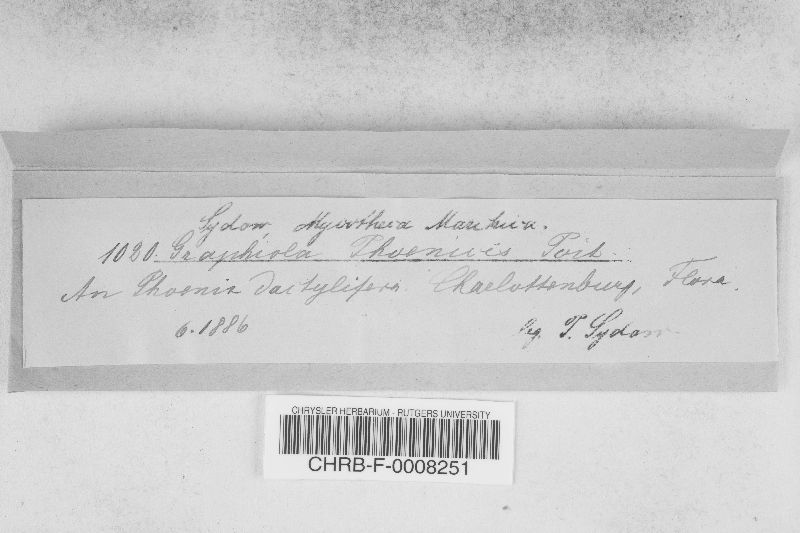 Sydow, Mycotheca Marchica.
1020. Graphiola Phoenicis Poit.
An Phoenix dactylifera. Charlottenburg, Flora.
6. 1886 leg. P. Sydow
CHRYSLER HERBARIUM - RUTGERS UNIVERSITY
CHRB-F-0008251